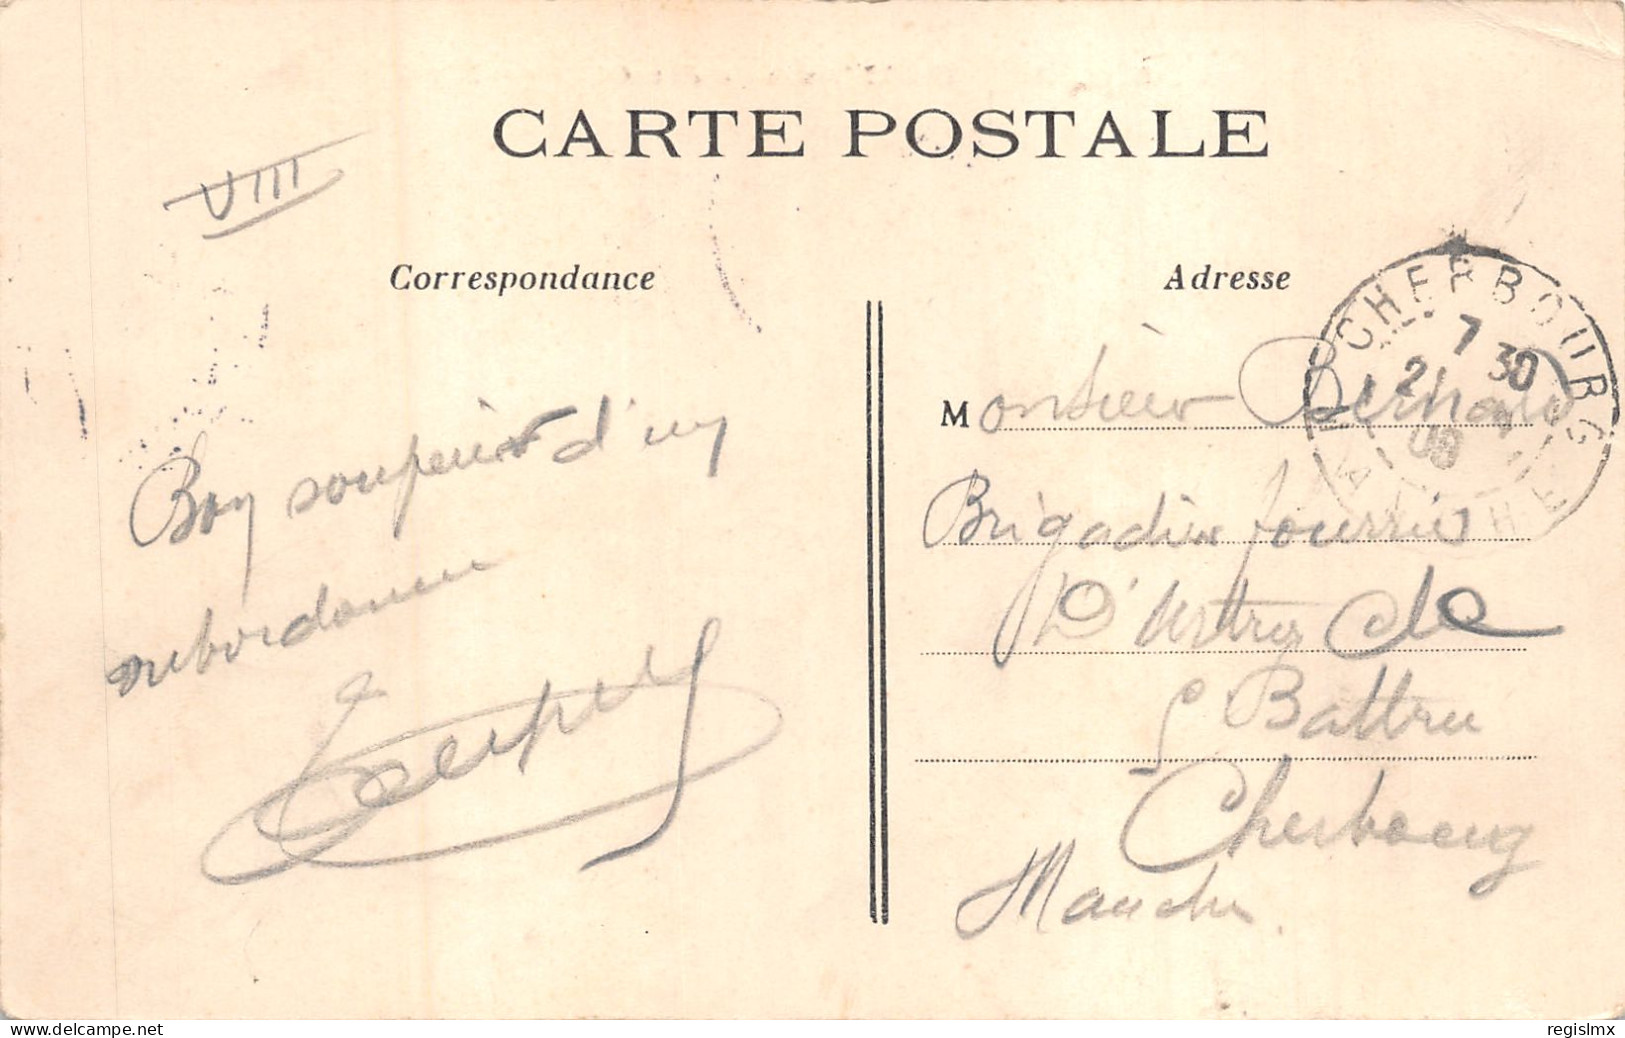 CARTE POSTALE
VIII
Correspondance
Bon souvenir d'un
Adresse
CHERBOURG
7 30
2
09
MANCHE
Monsieur Bernard
Brigadier fourrier
D'Artrie
Battrie
Cherbourg
Manche
delcampe.net
regislmx